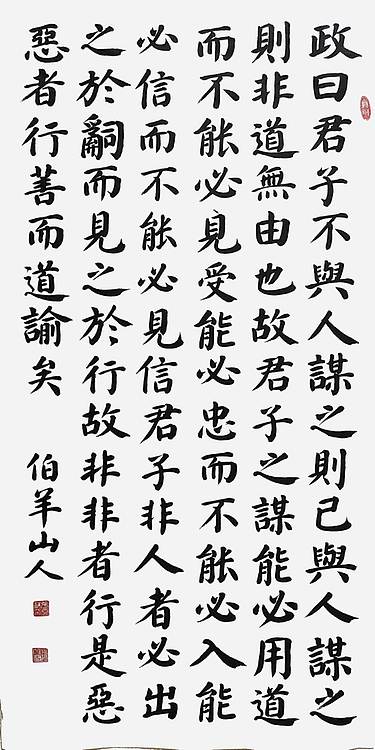 政曰君子不與人謀之則已與人謀之
則非道無由也故君子之謀能必用道
而不能必見受能必忠而不能必入能
必信而不能必見信君子非人者必出
之於辭而見之於行故非非者行是惡
惡者行善而道諭矣 伯羊山人